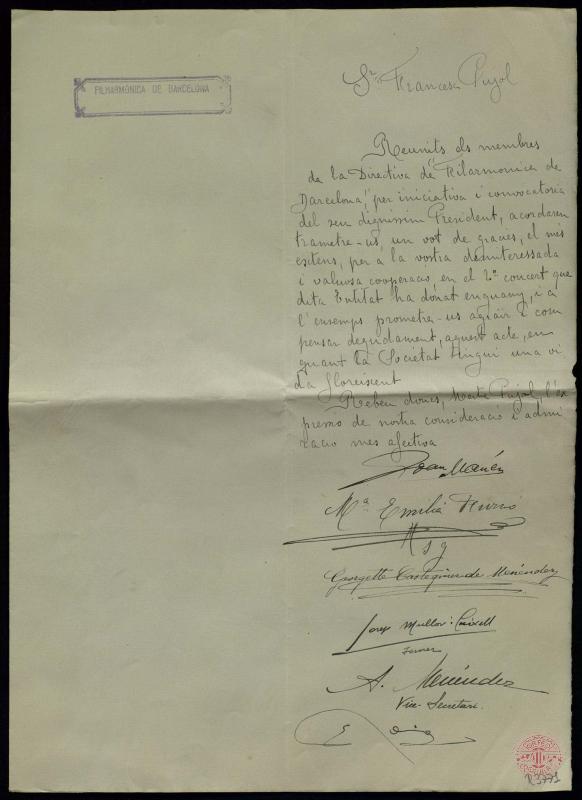 FILHARMÒNICA DE BARCELONA
Sr. Francesc Pujol
Reunits els membres
de la Directiva de "Filarmonica de
Barcelona", per iniciativa i convocatoria
del seu digníssim President, acordaren
trametre-us, un vot de gracies, el més
extens, per a la vostra desinteressada
i valuosa cooperació en el 2on concert que
dita Entitat ha donat enguany, i a
l'ensemps prometre-us agrair i com
pensar degudament, aquest acte, en
quant la Societat tingui una vi
da floreixent
Rebeu doncs, Mestre Pujol, l'ex
pressió de nostra consideració i admi
ració mes afectiva
Joan Manén
Mª Emilia
Georgette Castegnier de Menéndez
Josep Mullor i Caixell
A. Menéndez
Vice-Secretari
R 3771